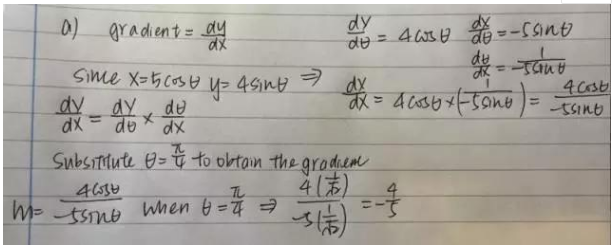 a) gradient = dy/dx    dy/dθ = 4cosθ  dx/dθ = -5sinθ
dθ/dx = 1/-5sinθ
Since x=5cosθ y=4sinθ ⇒ dy/dx = 4cosθ × (1/-5sinθ) = 4cosθ/-5sinθ
dy/dx = dy/dθ × dθ/dx
Substitute θ = π/4 to obtain the gradient
m = 4cosθ/-5sinθ when θ = π/4 ⇒ 4(1/√2)/-5(1/√2) = -4/5